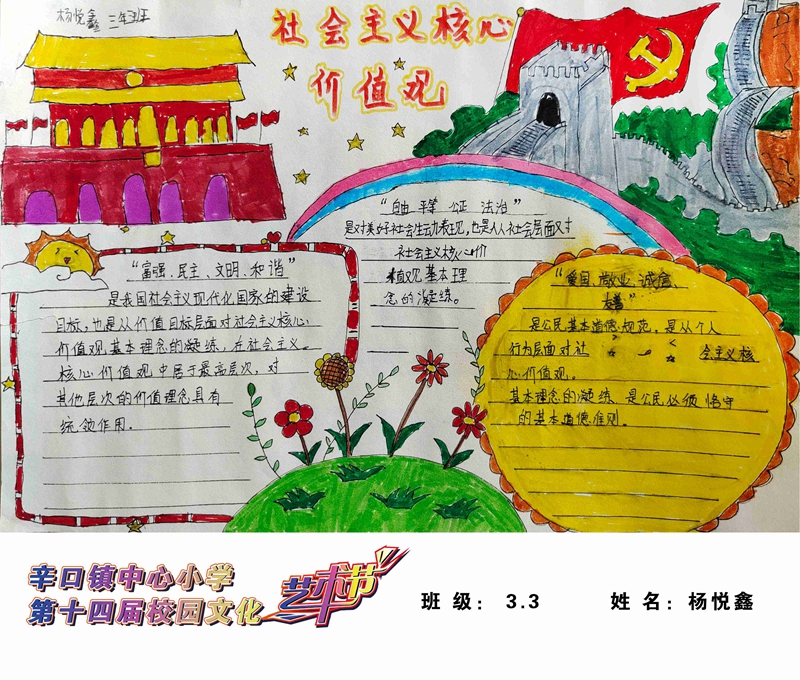 杨悦鑫 三年三班
社会主义核心
价值观
“自由 平等 公正 法治”
是对美好社会生动表现,也是从社会层面对
社会主义核心价
值观基本理
念的凝练。
“富强、民主、文明、和谐”
是我国社会主义现代化国家的建设
目标,也是从价值目标层面对社会主义核心
价值观基本理念的凝练,在社会主义
核心价值观中居于最高层次,对
其他层次的价值理念具有
统领作用。
“爱国、敬业、诚信、
友善”
是公民基本道德规范,是从个人
行为层面对社会主义核
心价值观。
基本理念的凝练、是公民必须恪守
的基本道德准则。
辛口镇中心小学
第十四届校园文化
艺术节
班级: 3.3
姓名: 杨悦鑫